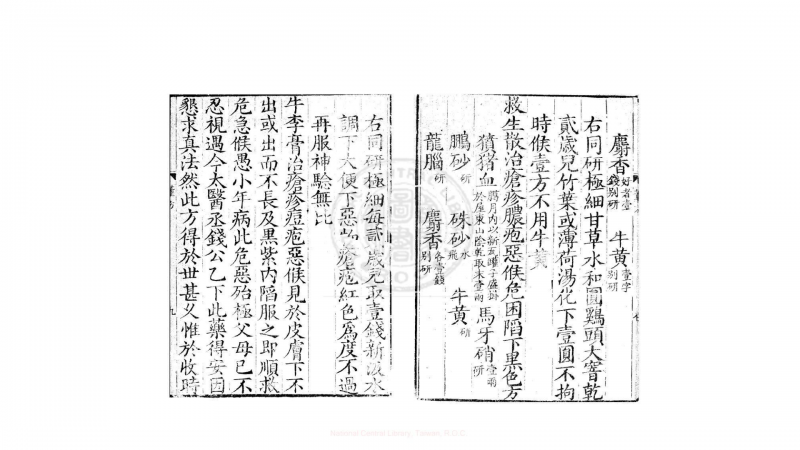 麝香好者壹錢別研 牛黃壹字別研
右同研極細甘草水和圓鷄頭大窨乾
貳歲兒竹葉或薄荷湯化下壹圓不拘
時候壹方不用牛黃
救生散治瘡疹膿疱惡候危困陷下黑色方
豶猪血臘月內以新瓦罐子盛掛於屋東山陰乾取末壹兩 馬牙硝壹兩
鵬砂研 硃砂水飛 牛黃研
龍腦研 麝香各壹錢別研
右同研極細每歲兒取壹錢新汲水
調下大便下惡物瘡疱紅色為度不過
再服神驗無比
牛李膏治瘡疹痘疱惡候見於皮膚下不
出或出而不長及黑紫內陷服之即順救
危急候愚小年病此危惡殆極父母已不
忍視遇今太醫丞錢公乙下此藥得安因
懇求真法然此方得於世甚乆惟於收時
九
National Central Library, Taiwan, R.O.C.